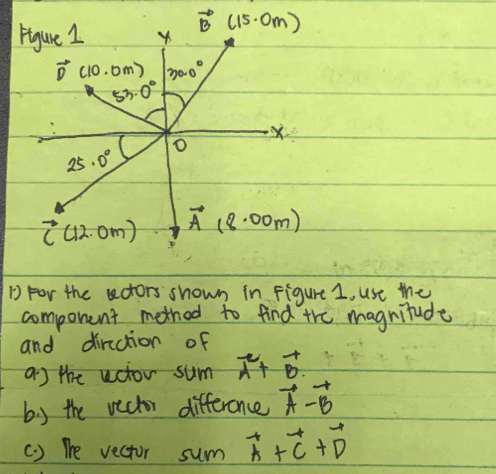 Figure 1
B (15.0m)
Y
D (10.0m)
30.0°
53.0°
X
O
25.0°
C (12.0m)
A (8.00m)
1) For the vectors shown in Figure 1, use the
component method to find the magnitude
and direction of
a.) the vector sum A + B.
b.) the vector difference A - B
c.) The vector sum A + C + D